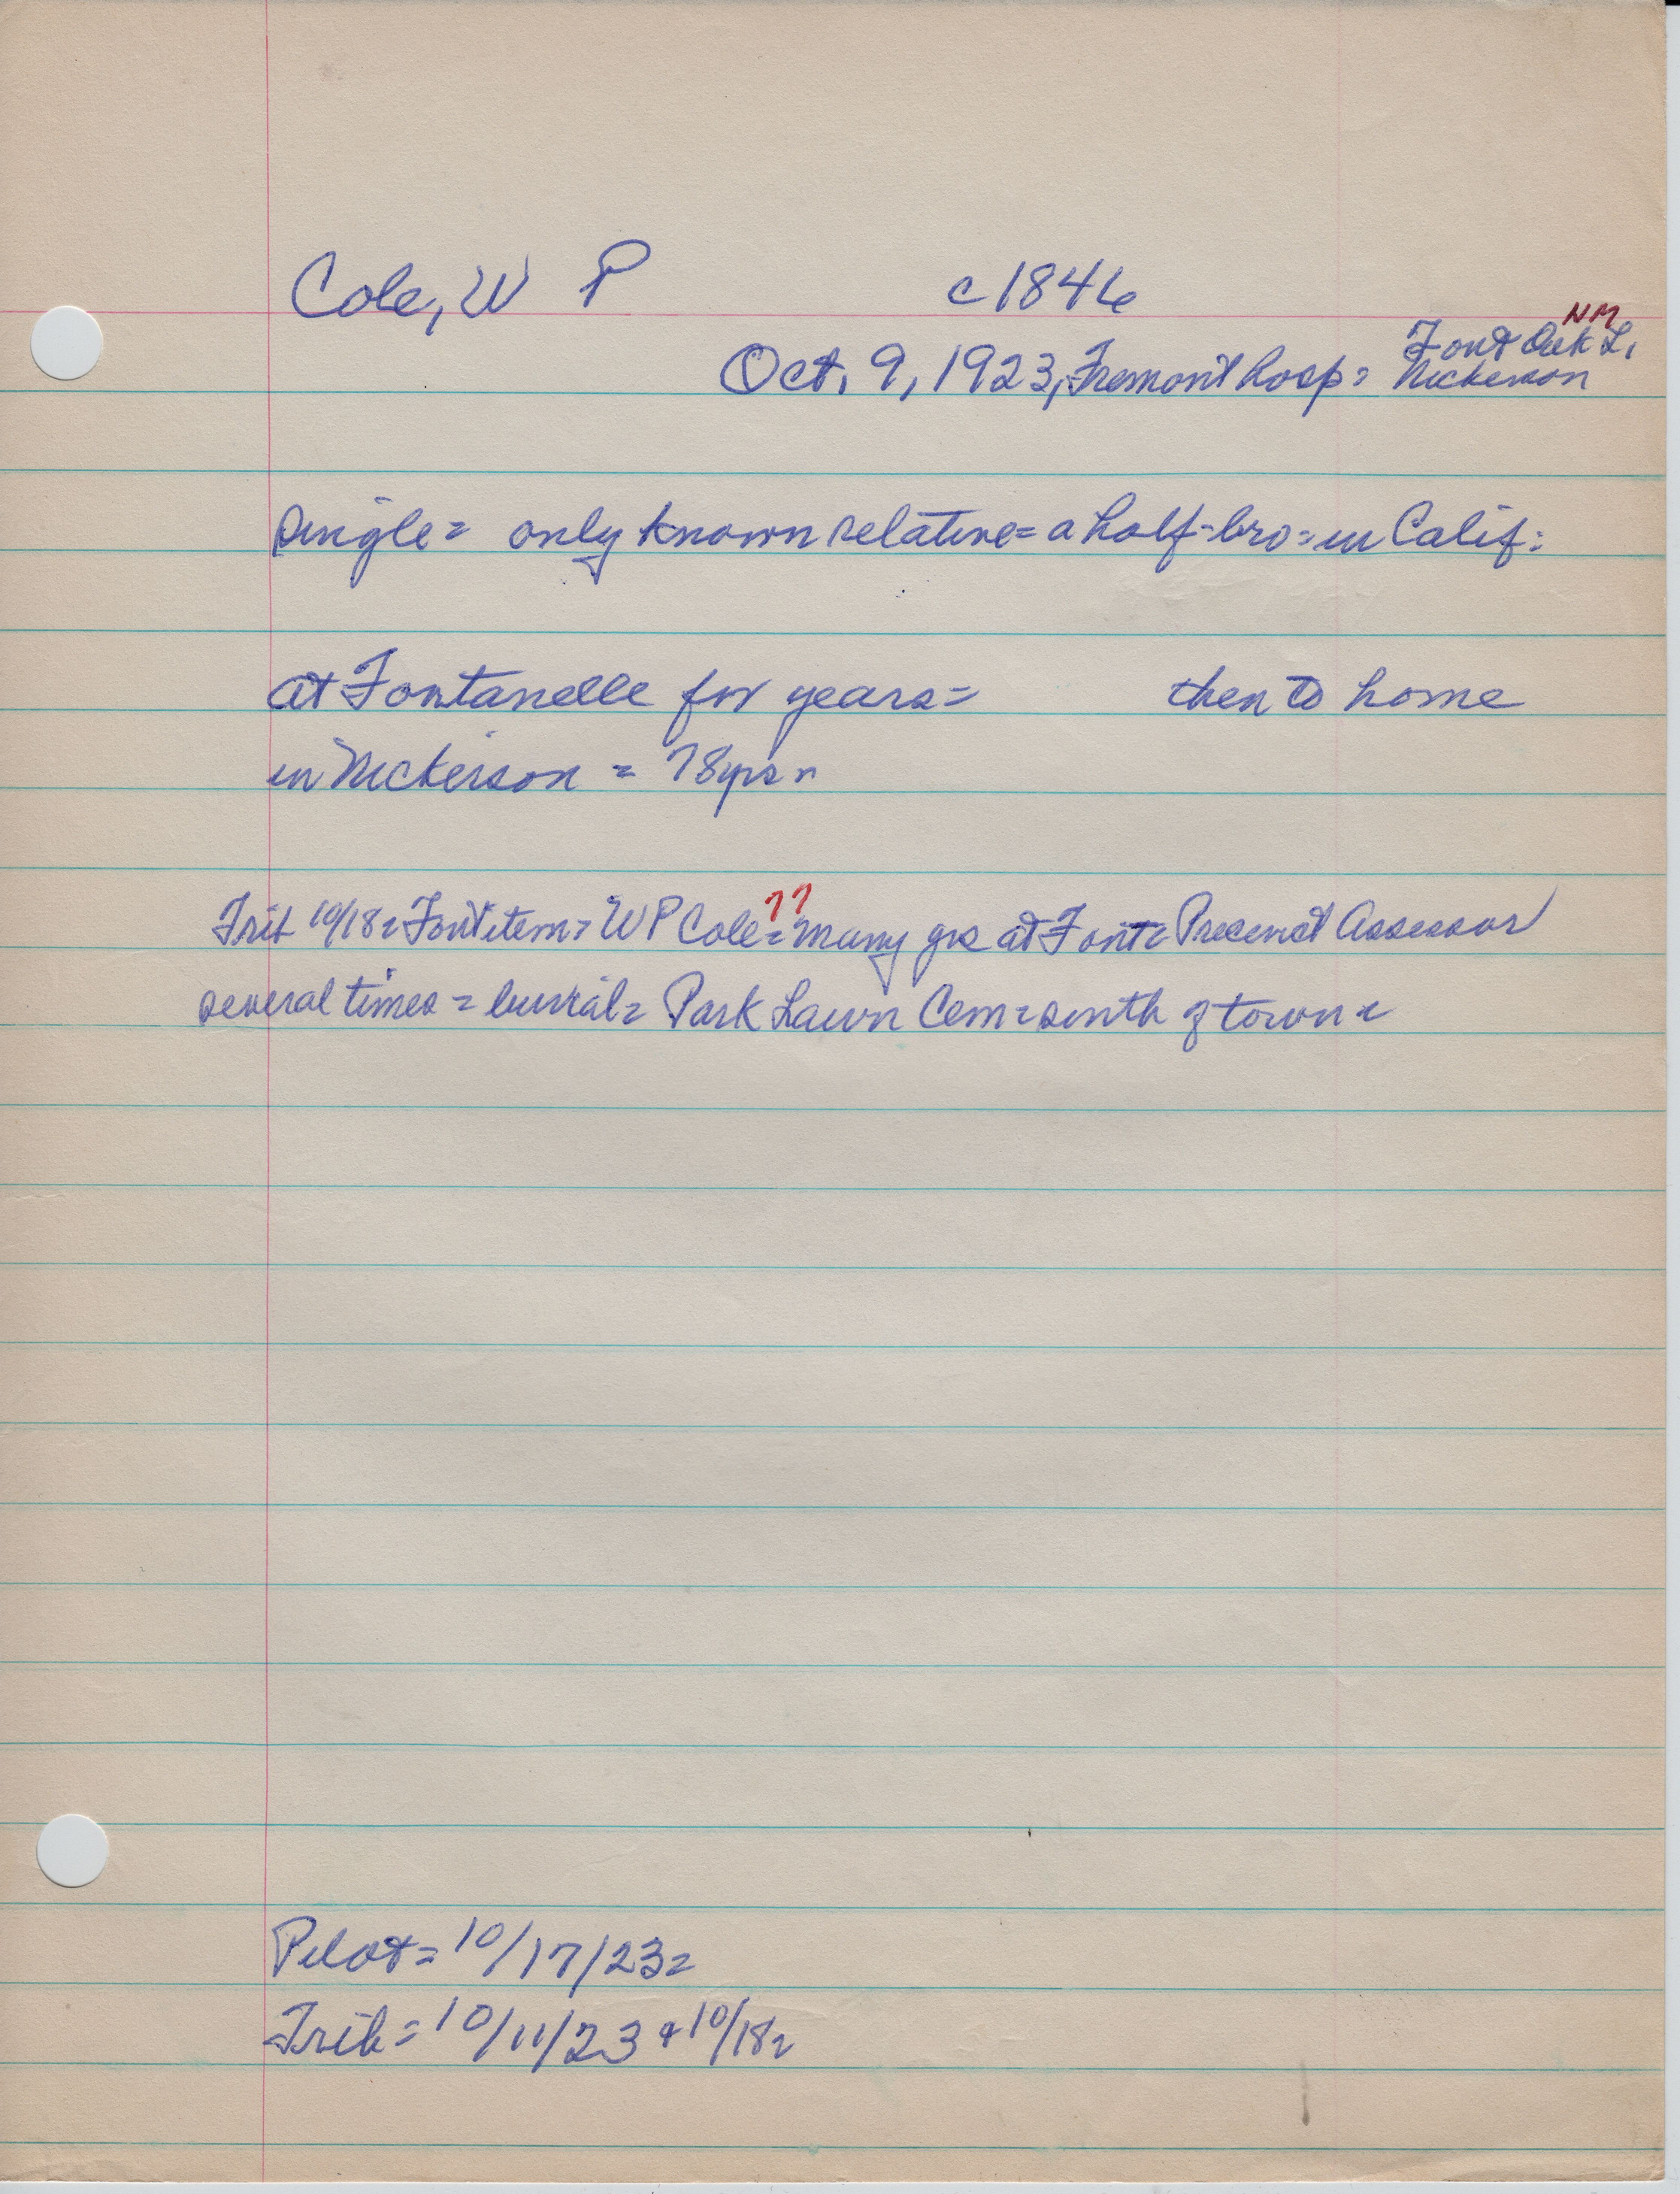 Cole, W P c 1846
NM
Font Oak L,
Oct. 9, 1923, Fremont hosp = Nickerson
single = only known relative = a half-bro = in Calif =
at Fontanelle for years = then to home
in Nickerson = 78 yrs =
??
Trib 10/18 = Font item = W P Cole = many yrs at Font = Precinct Assessor
several times = burial = Park Lawn Cem = south of town =
Pilot = 10/17/23 =
Trib = 10/11/23 + 10/18 =